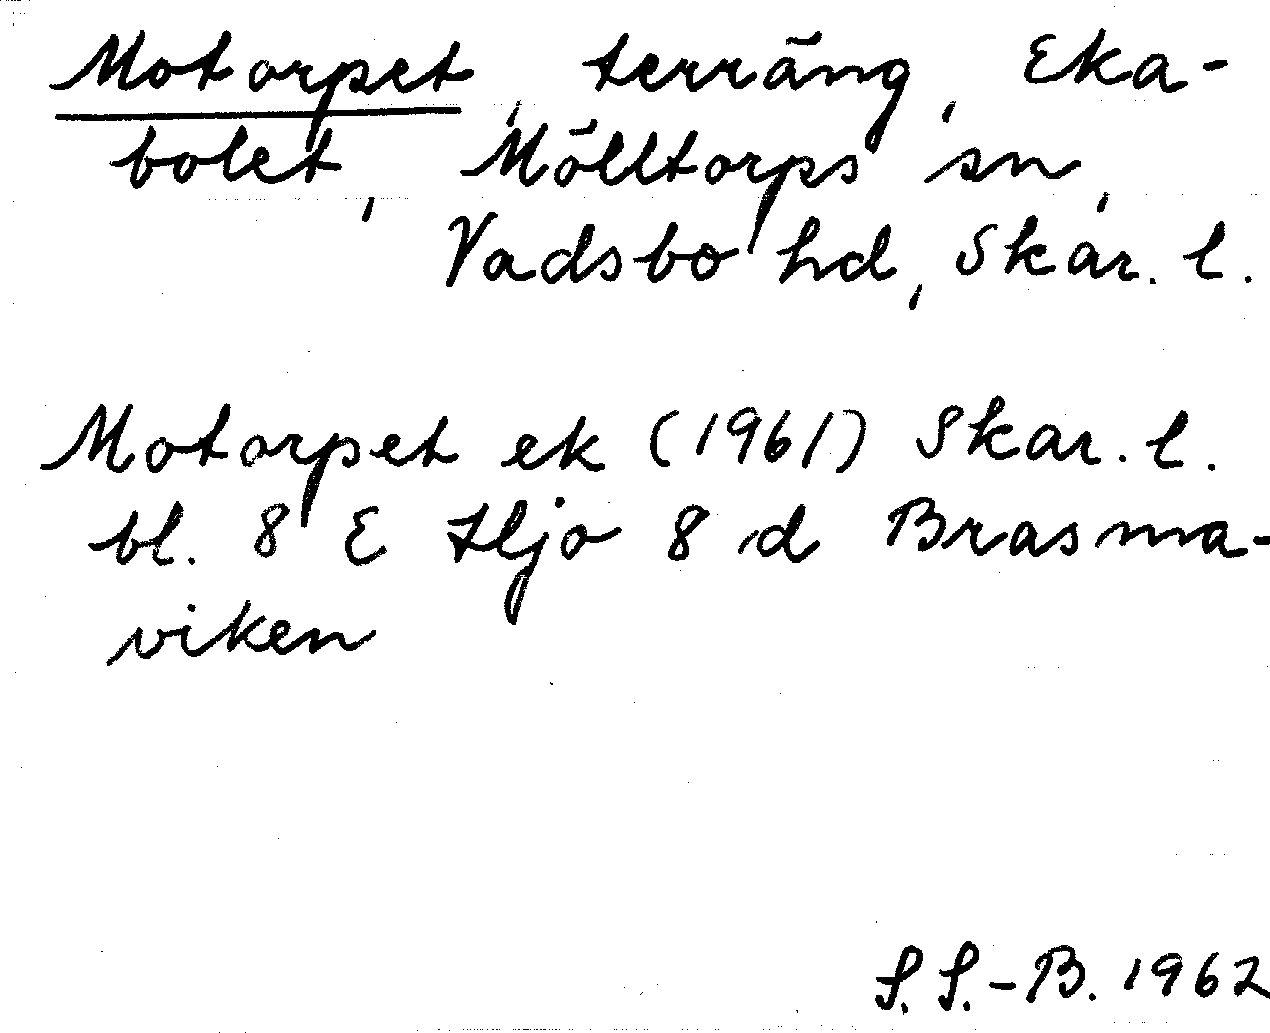 Motorpet, terräng, Eka-
bolet, Mölltorps sn,
Vadsbo hd, Skar. l.
Motorpet ek (1961) Skar. l.
bl. 8 E Hjo 8 d Brasma-
viken
S. S.-B. 1962